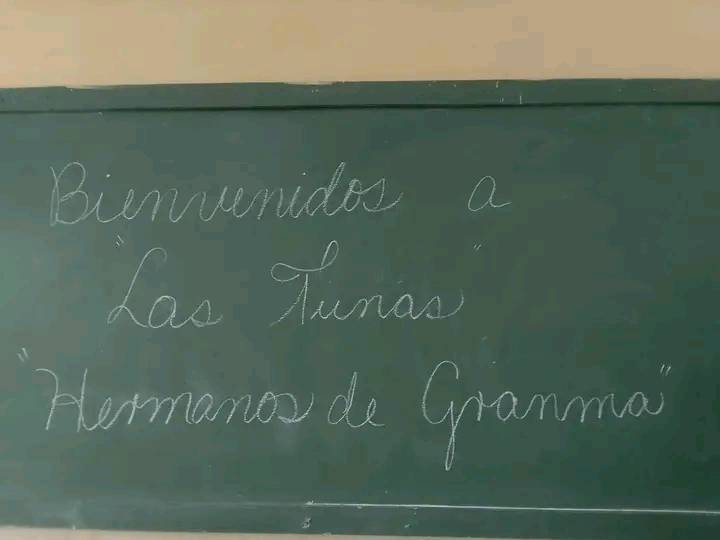 Bienvenidos a
"Las Tunas"
"Hermanos de Granma"